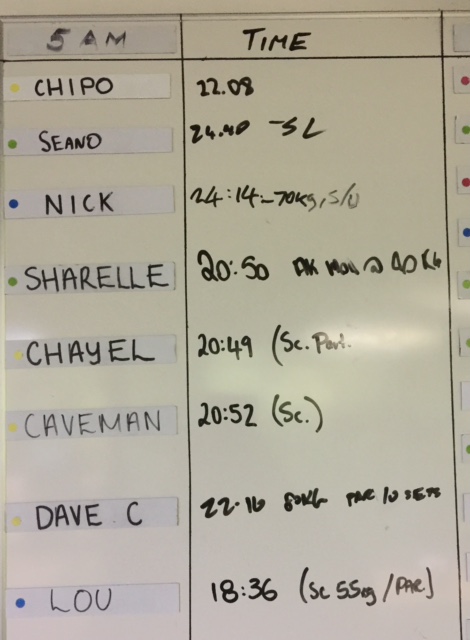 5 AM TIME
CHIPO 22.08
SEANO 24.40 - SL
NICK 24:14 - 70KG, S/U
SHARELLE 20:50 @ 40 KG
CHAYEL 20:49 (Sc.
CAVEMAN 20:52 (Sc.)
DAVE C 22.16 80KG
LOU 18:36 (Sc 55kg /PAR)